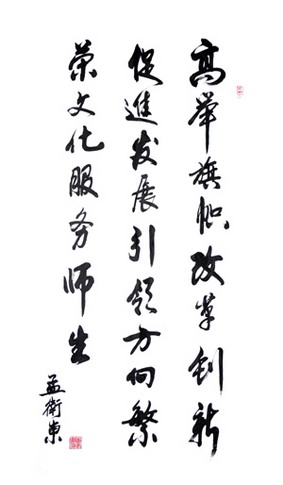 高举旗帜改革创新
促进发展引领方向繁
荣文化服务师生
孟卫东